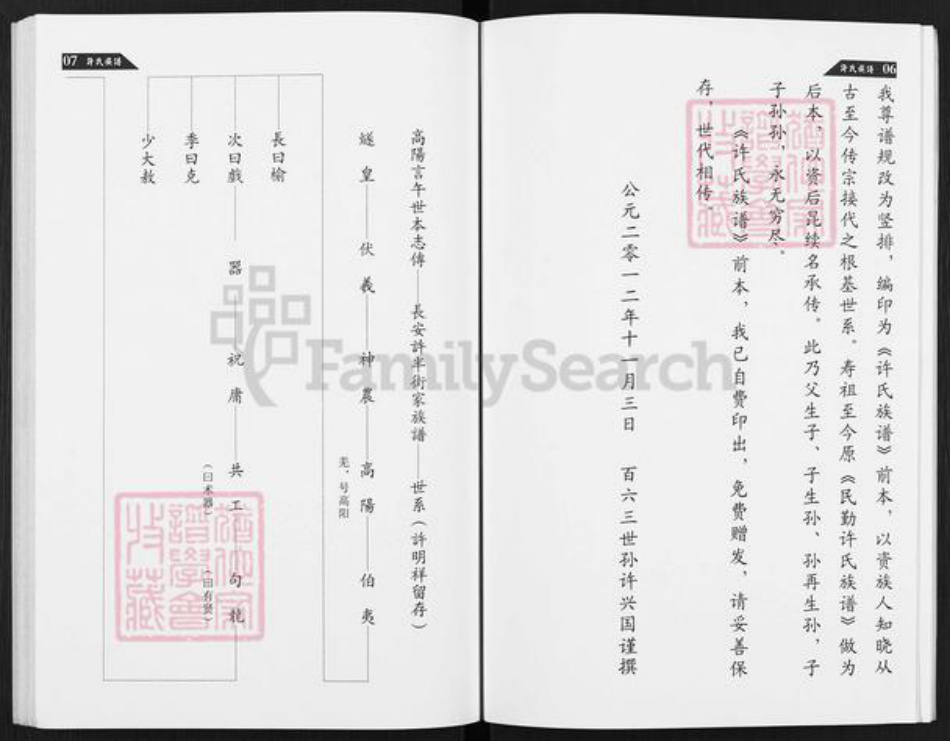 许氏族谱 06
我尊谱规改为竖排，编印为《许氏族谱》前本，以资族人知晓从
古至今传宗接代之根基世系。寿祖至今原《民勤许氏族谱》做为
后本，以资后昆续名承传。此乃父生子、子生孙、孙再生孙，子
子孙孙，永无穷尽。
《许氏族谱》前本，我已自费印出，免费赠发，请妥善保
存，世代相传。
公元二零一二年十一月三日 百六三世孙许兴国谨撰
07 許氏族譜
高陽言午世本志傳——長安許半街家族譜——世系（許明祥留存）
燧皇——伏義——神農——高陽——伯夷
羌、号高阳
長曰榆
次曰戲——器——祝庸——共工——句龍
（曰术器）
季曰克
少大敖
FamilySearch